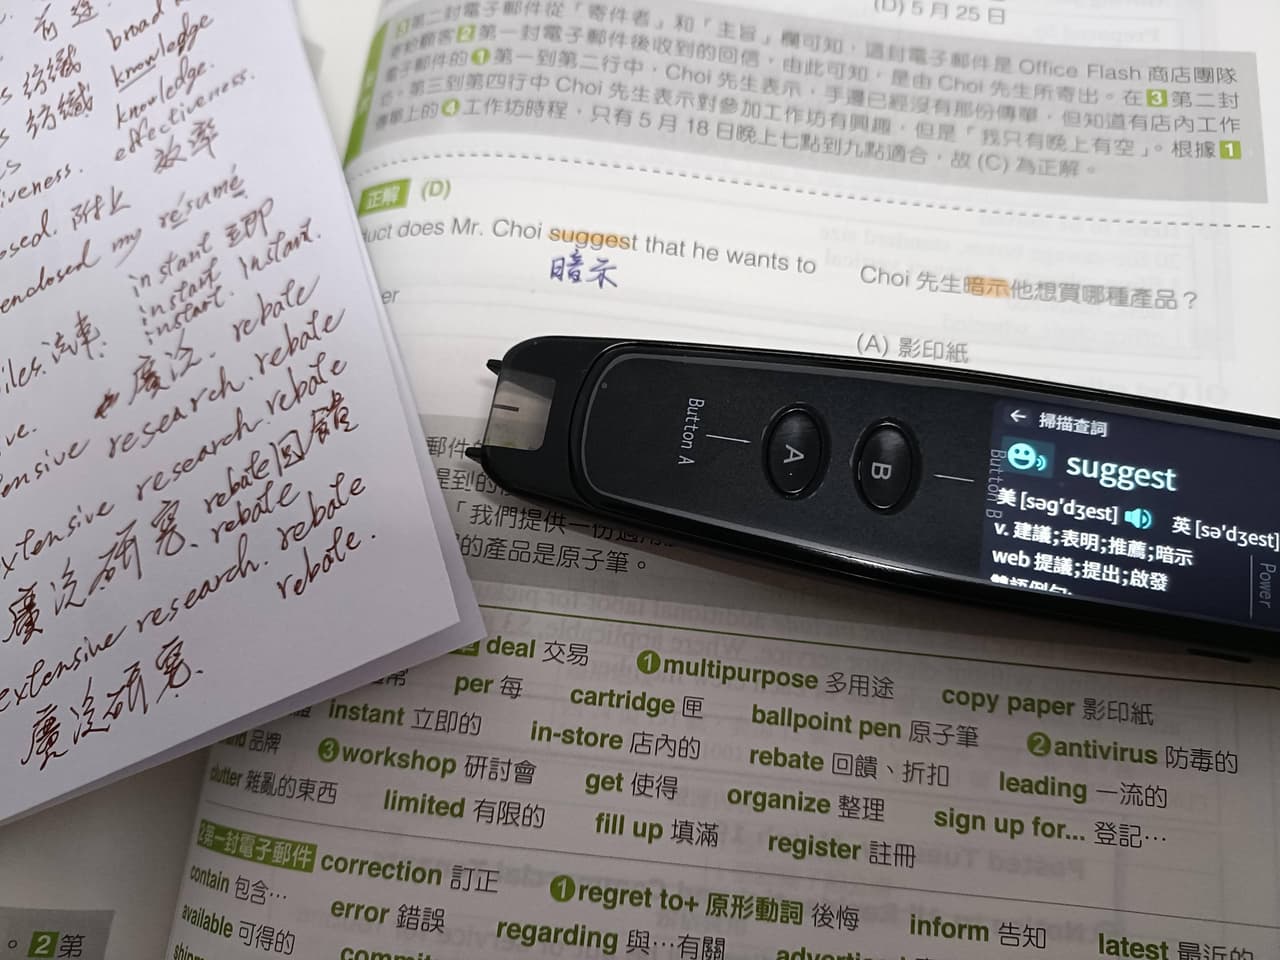 (D) 5 月 25 日
第二封電子郵件從「寄件者」和「主旨」欄可知，這封電子郵件是 Office Flash 商店團隊
寄給顧客 2 第一封電子郵件後收到的回信，由此可知，是由 Choi 先生所寄出。在 3 第二封
電子郵件的 1 第一到第二行中，Choi 先生表示，手邊已經沒有那份傳單，但知道有店內工作
第三到第四行中 Choi 先生表示對參加工作坊有興趣，但是「我只有晚上有空」。根據 1
傳單上的 4 工作坊時程，只有 5 月 18 日晚上七點到九點適合，故 (C) 為正解。
正解 (D)
does Mr. Choi suggest that he wants to
暗示
Choi 先生暗示他想買哪種產品？
(A) 影印紙
「我們提供一份適用
的產品是原子筆。
Button A
A
B
Button B
Power
掃描查詞
suggest
美 [səg'dʒest] 英 [sə'dʒest]
v. 建議;表明;推薦;暗示
web 提議;提出;啟發
雙語例句:
deal 交易 1 multipurpose 多用途 copy paper 影印紙
per 每 cartridge 匣 ballpoint pen 原子筆 2 antivirus 防毒的
instant 立即的 in-store 店內的 rebate 回饋、折扣 leading 一流的
品牌 3 workshop 研討會 get 使得 organize 整理 sign up for... 登記…
clutter 雜亂的東西 limited 有限的 fill up 填滿 register 註冊
2 第一封電子郵件 correction 訂正 1 regret to+ 原形動詞 後悔 inform 告知 latest 最近的
contain 包含… error 錯誤 regarding 與…有關
available 可得的
。2 第
紡織 broad
紡織 knowledge
knowledge.
effectiveness.
效率
附上
enclosed my résumé
instant 立即
instant
instant. instant.
汽車
廣泛. rebate
research. rebate
extensive research. rebate
廣泛研究. rebate 回饋
rebate
extensive research. rebate
廣泛研究. rebate.